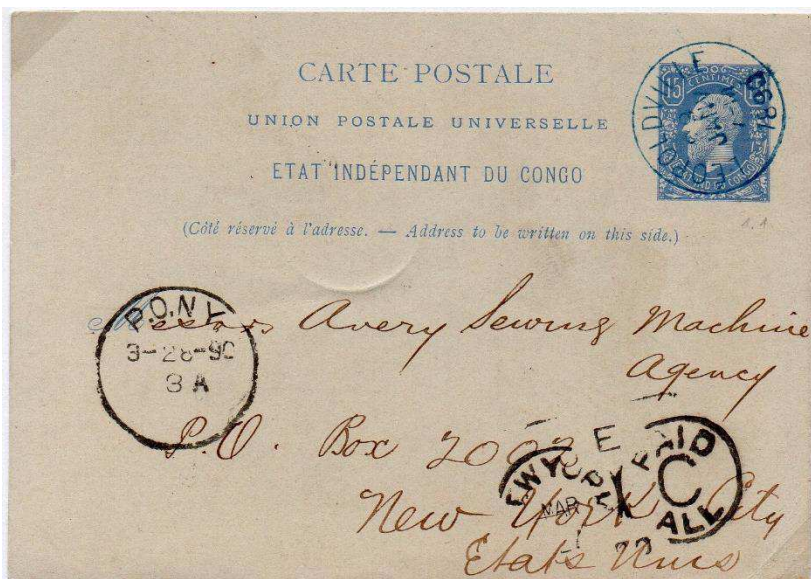 CARTE POSTALE
UNION POSTALE UNIVERSELLE
ETAT INDÉPENDANT DU CONGO
(Côté réservé à l'adresse. — Address to be written on this side.)
15 CENTIMES
LEOPOLDVILLE
P.O.N.Y.
3-28-90
3 A
Messrs Avery Sewing Machine
Agency
P.O. Box
New York City
Etats Unis
E
NEW YORK
MAR
PAID
C
ALL